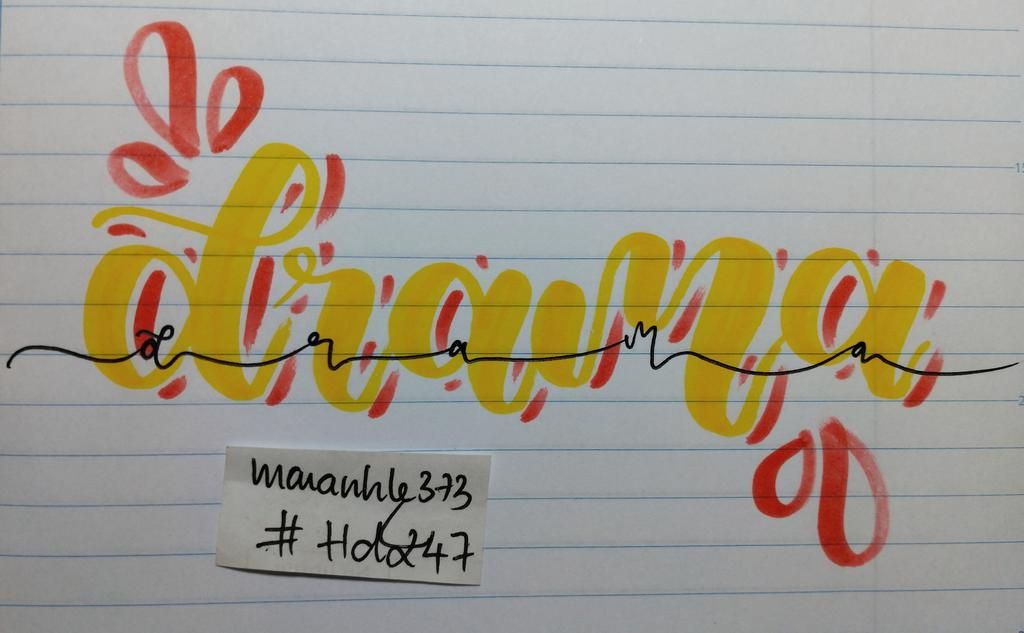 drama
drama
maianhle373